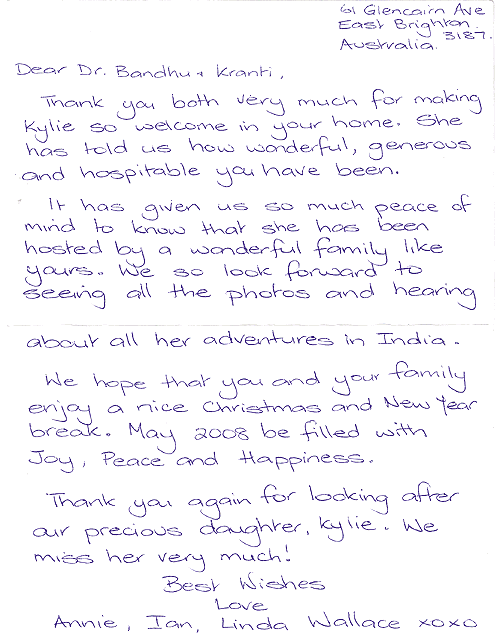 61 Glencairn Ave
East Brighton
3187.
Australia.
Dear Dr. Bandhu & Kranti,
Thank you both very much for making
Kylie so welcome in your home. She
has told us how wonderful, generous
and hospitable you have been.
It has given us so much peace of
mind to know that she has been
hosted by a wonderful family like
yours. We so look forward to
seeing all the photos and hearing
about all her adventures in India.
We hope that you and your family
enjoy a nice Christmas and New Year
break. May 2008 be filled with
Joy, Peace and Happiness.
Thank you again for looking after
our precious daughter, Kylie. We
miss her very much!
Best Wishes
Love
Annie, Ian, Linda Wallace xoxo